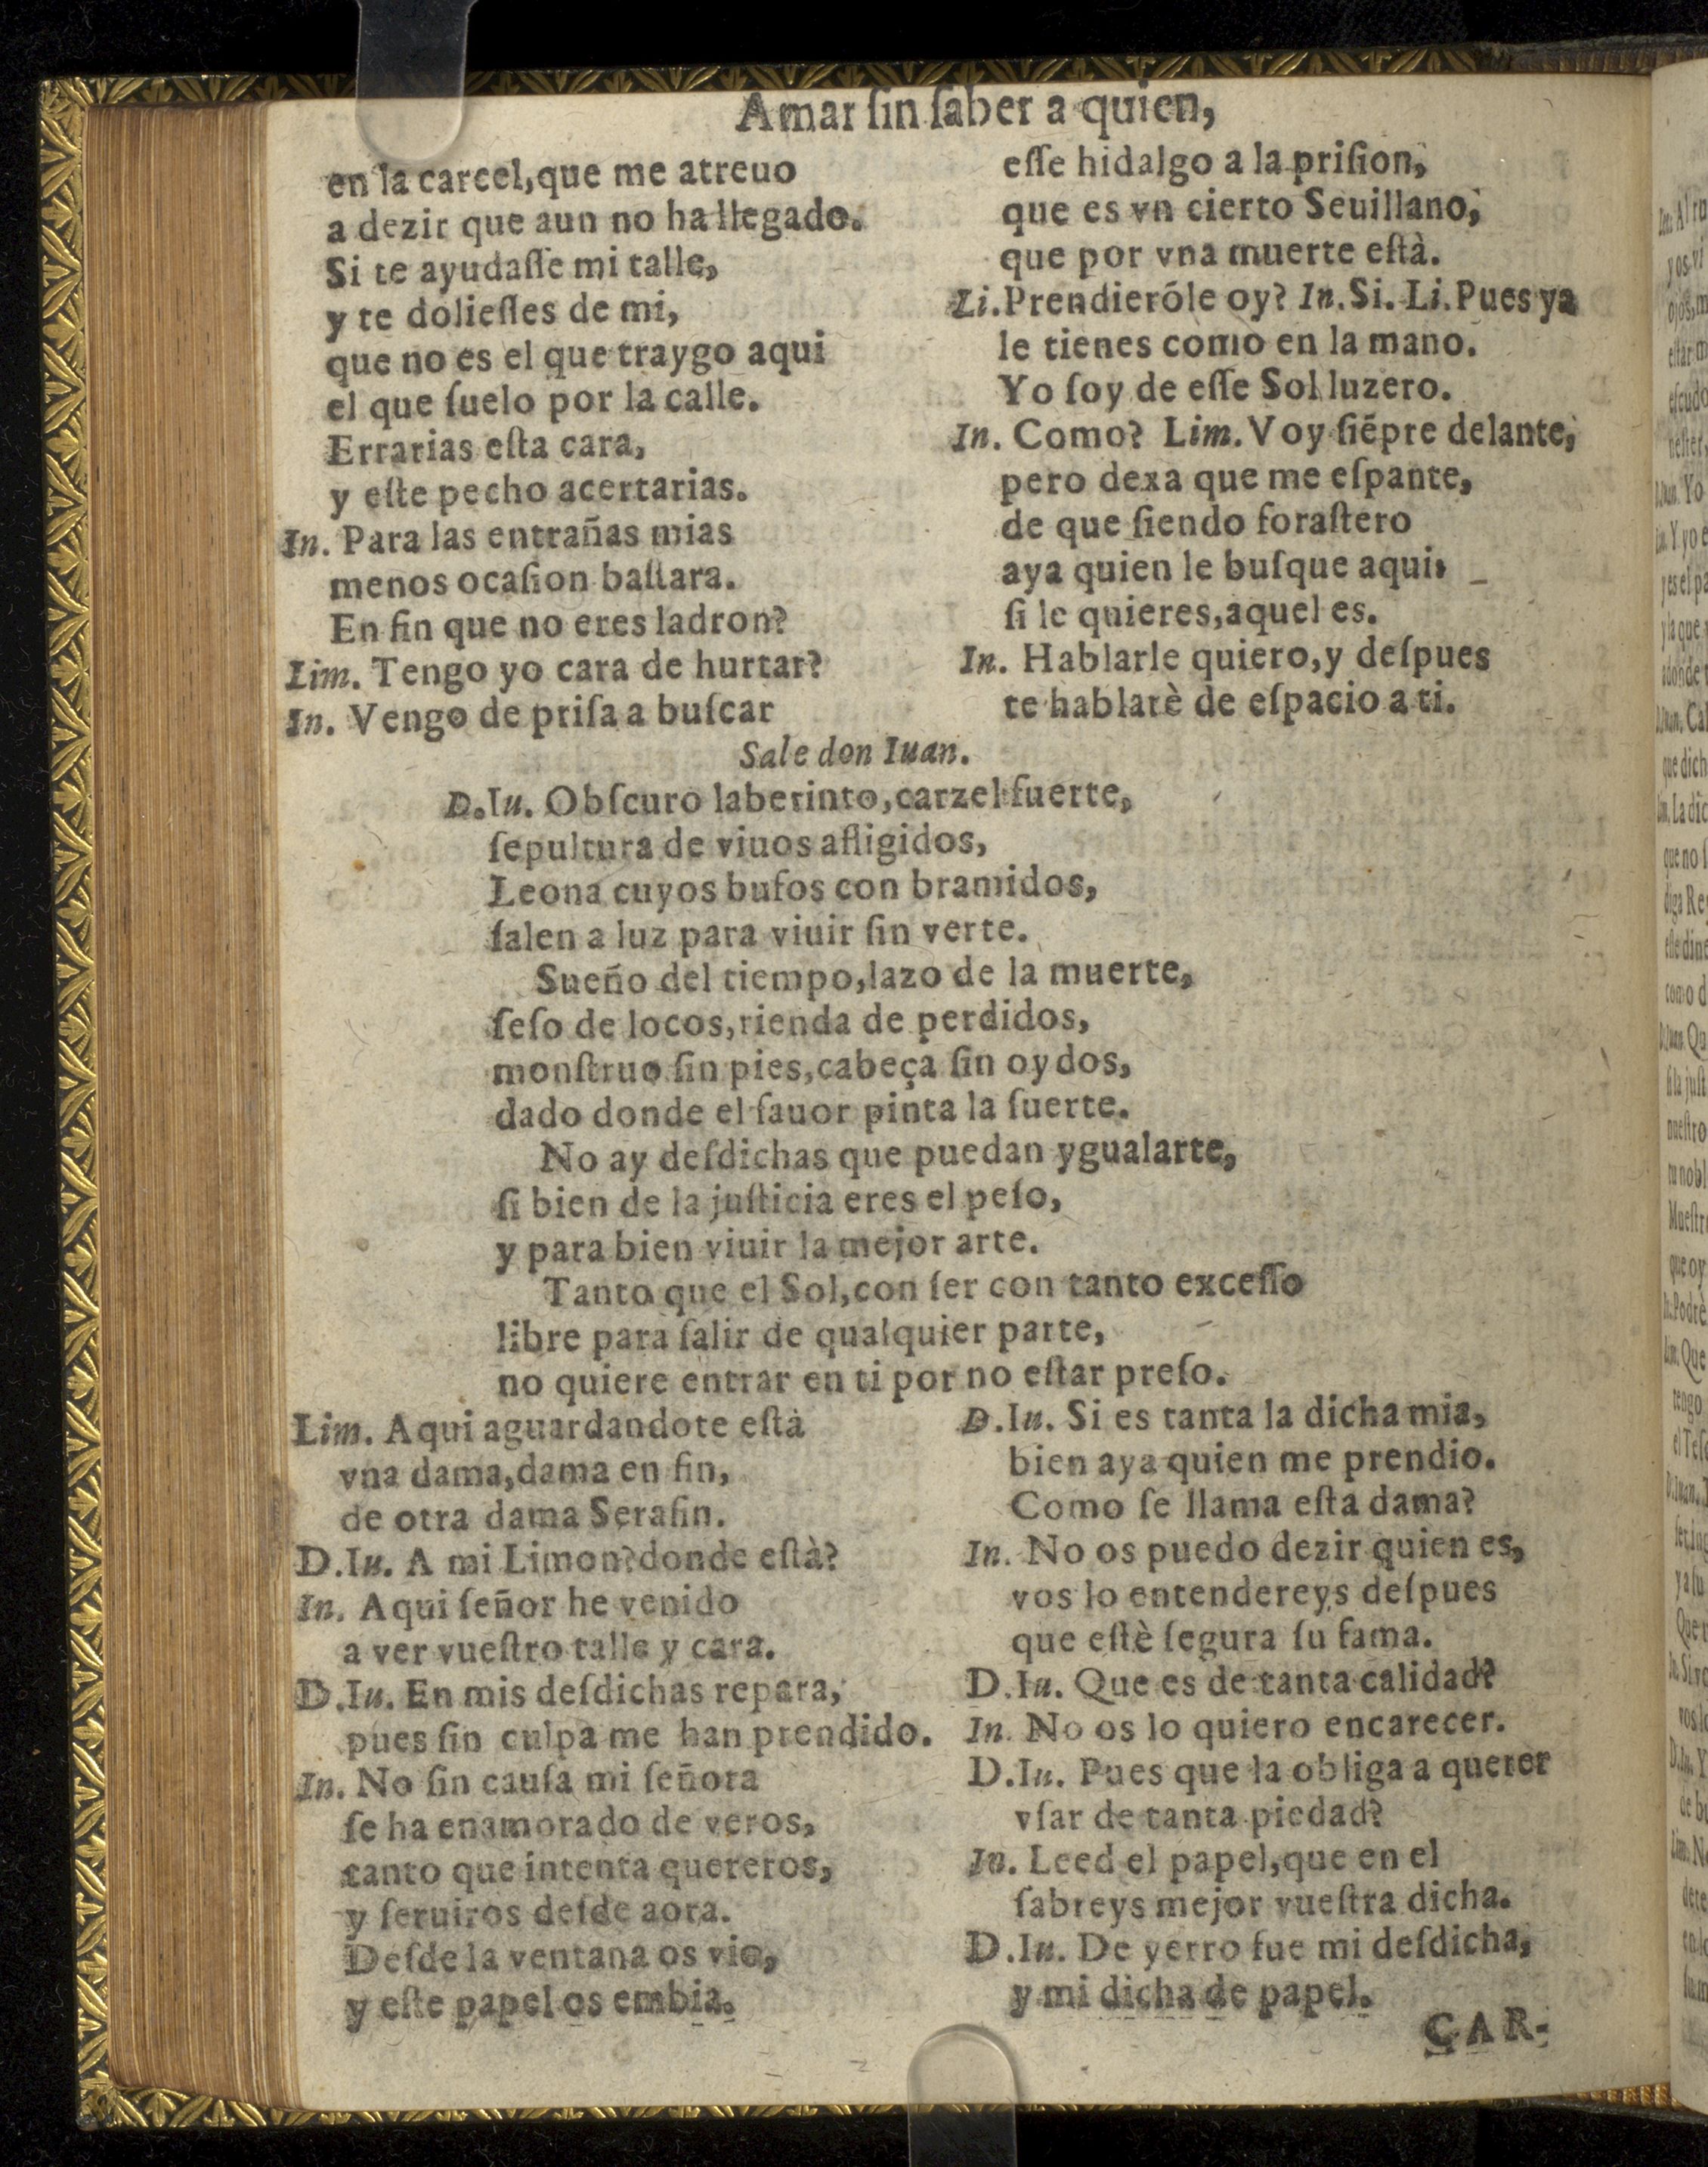 Amar ſin ſaber a quien,
en la carcel,que me atreuo
a dezir que aun no ha llegado.
Si te ayudaſſe mi talle,
y te dolieſſes de mi,
que no es el que traygo aqui
el que ſuelo por la calle.
Errarias eſta cara,
y eſte pecho acertarias.
In. Para las entrañas mias
menos ocaſion baſtara.
En fin que no eres ladron?
Lim. Tengo yo cara de hurtar?
In. Vengo de priſa a buſcar
eſſe hidalgo a la priſion,
que es vn cierto Seuillano,
que por vna muerte eſtà.
Li.Prendieróle oy? In.Si. Li.Pues ya
le tienes como en la mano.
Yo ſoy de eſſe Sol luzero.
In. Como? Lim.Voy ſiẽpre delante,
pero dexa que me eſpante,
de que ſiendo foraſtero
aya quien le buſque aqui,
ſi le quieres,aquel es.
In. Hablarle quiero,y deſpues
te hablarè de eſpacio a ti.
Sale don Iuan.
D.Iu. Obſcuro laberinto,carzel fuerte,
ſepultura de viuos afligidos,
Leona cuyos bufos con bramidos,
ſalen a luz para viuir ſin verte.
Sueño del tiempo,lazo de la muerte,
ſeſo de locos,rienda de perdidos,
monſtruo ſin pies,cabeça ſin oydos,
dado donde el fauor pinta la ſuerte.
No ay deſdichas que puedan ygualarte,
ſi bien de la juſticia eres el peſo,
y para bien viuir la mejor arte.
Tanto que el Sol,con ſer con tanto exceſſo
libre para ſalir de qualquier parte,
no quiere entrar en ti por no eſtar preſo.
Lim. Aqui aguardandote eſtà
vna dama,dama en fin,
de otra dama Serafin.
D.Iu. A mi Limon?donde eſtà?
In. Aqui ſeñor he venido
a ver vueſtro talle y cara.
D.Iu. En mis deſdichas repara,
pues ſin culpa me han prendido.
In. No ſin cauſa mi ſeñora
ſe ha enamorado de veros,
tanto que intenta quereros,
y ſeruiros deſde aora.
Deſde la ventana os vio,
y eſte papel os embia.
D.Iu. Si es tanta la dicha mia,
bien aya quien me prendio.
Como ſe llama eſta dama?
In. No os puedo dezir quien es,
vos lo entendereys deſpues
que eſtè ſegura ſu fama.
D.Iu. Que es de tanta calidad?
In. No os lo quiero encarecer.
D.Iu. Pues que la obliga a querer
vſar de tanta piedad?
In. Leed el papel,que en el
ſabreys mejor vueſtra dicha.
D.Iu. De yerro fue mi deſdicha,
y mi dicha de papel.
CAR-